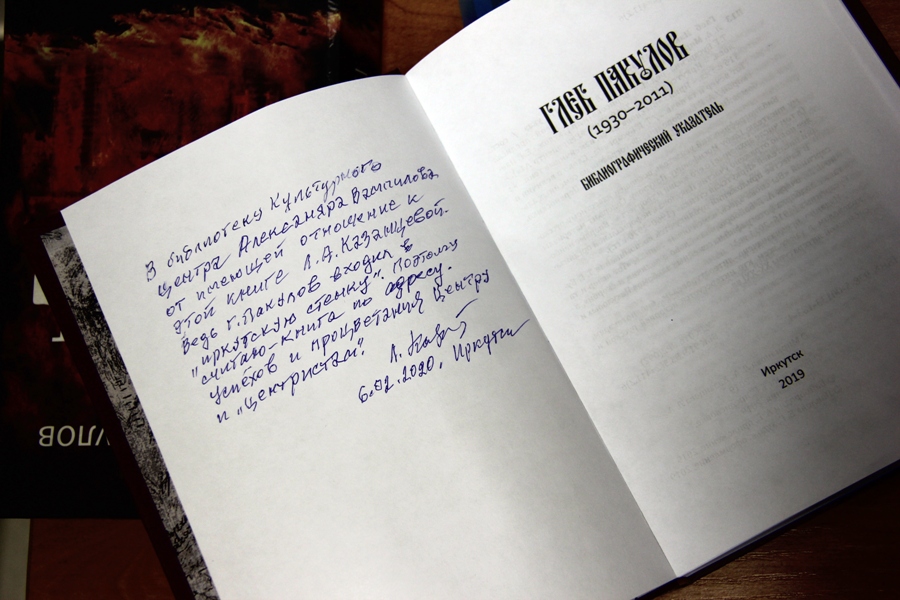 В библиотеку Культурного
центра Александра Вампилова
от имеющей отношение к
этой книге Л.А.Казанцевой.
Ведь Г.Пакулов входил в
"иркутскую стенку". Поэтому
считаю-книга по адресу.
Успехов и процветания Центру
и "центристам".
Л.
6.02.2020. Иркутск
ГЛЕБ ПАКУЛОВ
(1930–2011)
БИБЛИОГРАФИЧЕСКИЙ УКАЗАТЕЛЬ
Иркутск
2019
УЛОВ